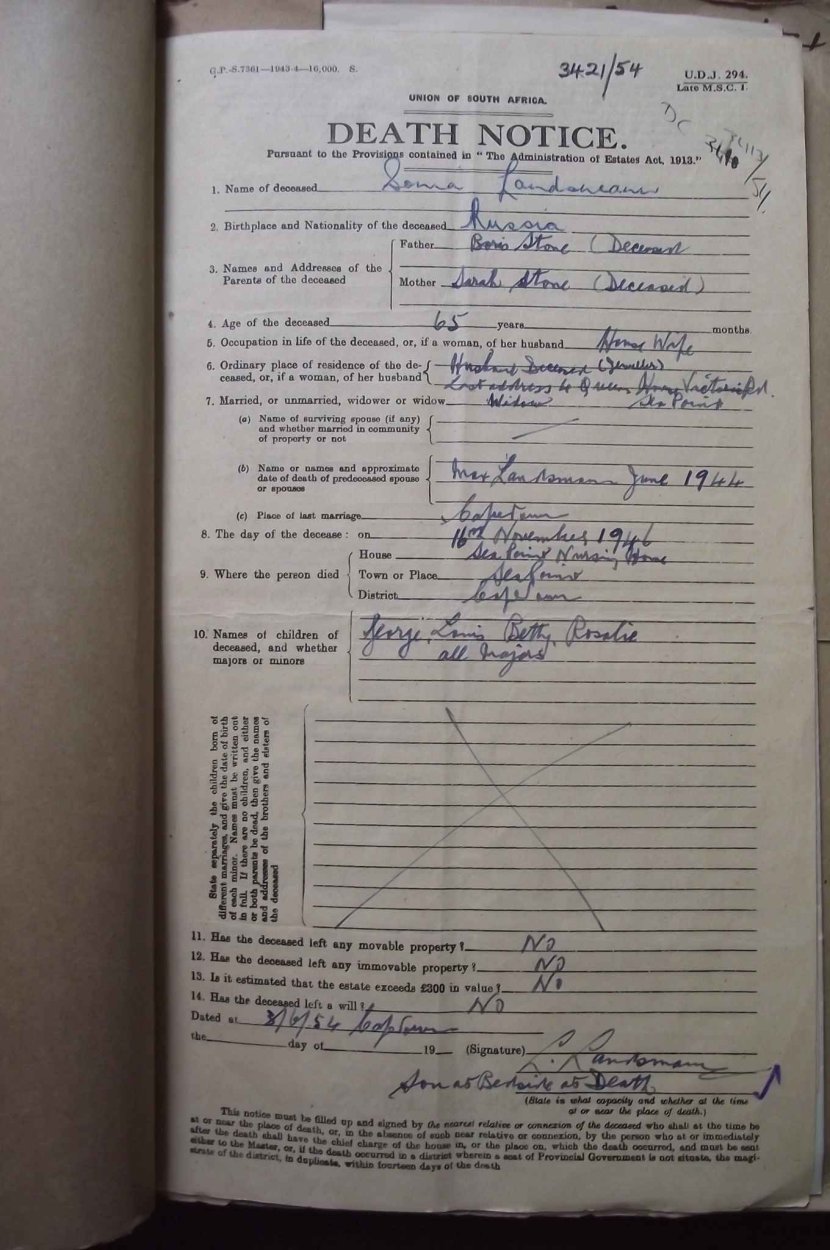 G.P.-S.7361—1943-4—16,000. S.
3421/54
U.D.J. 294.
Late M.S.C. 1.
UNION OF SOUTH AFRICA.
DC
DEATH NOTICE.
Pursuant to the Provisions contained in "The Administration of Estates Act, 1913."
1. Name of deceased Sonia Landsmann
2. Birthplace and Nationality of the deceased Russia
3. Names and Addresses of the Parents of the deceased
Father Boris Stone (Deceased
Mother Sarah Stone (Deceased)
4. Age of the deceased 65 years months
5. Occupation in life of the deceased, or, if a woman, of her husband House Wife
6. Ordinary place of residence of the de-
ceased, or, if a woman, of her husband
Husband Deceased (Jeweller)
Last address 4 Queens Victoria Rd.
Sea Point
7. Married, or unmarried, widower or widow Widow
(a) Name of surviving spouse (if any)
and whether married in community
of property or not
(b) Name or names and approximate
date of death of predeceased spouse
or spouses
Max Landsmann June 1944
(c) Place of last marriage Cape Town
8. The day of the decease: on 16th November 1946
9. Where the person died
House Sea Point Nursing Home
Town or Place Sea Point
District Cape Town
10. Names of children of
deceased, and whether
majors or minors
George, Louis Betty, Rosalie
all Majors
State separately the children born of
different marriages, and give the date of birth
of each minor. Names must be written out
in full. If there are no children, and either
or both parents be dead, then give the names
and addresses of the brothers and sisters of
the deceased
11. Has the deceased left any movable property? No
12. Has the deceased left any immovable property? No
13. Is it estimated that the estate exceeds £300 in value? No
14. Has the deceased left a will? No
Dated at 3/6/54 Cape Town
the day of 19 (Signature) L. Landsmann
Son at Bedside at Death
(State in what capacity and whether at the time
at or near the place of death.)
This notice must be filled up and signed by the nearest relative or connexion of the deceased who shall at the time be
at or near the place of death, or, in the absence of such near relative or connexion, by the person who at or immediately
after the death shall have the chief charge of the house in, or the place on, which the death occurred, and must be sent
either to the Master, or, if the death occurred in a district wherein a seat of Provincial Government is not situate, the magi-
strate of the district, in duplicate, within fourteen days of the death